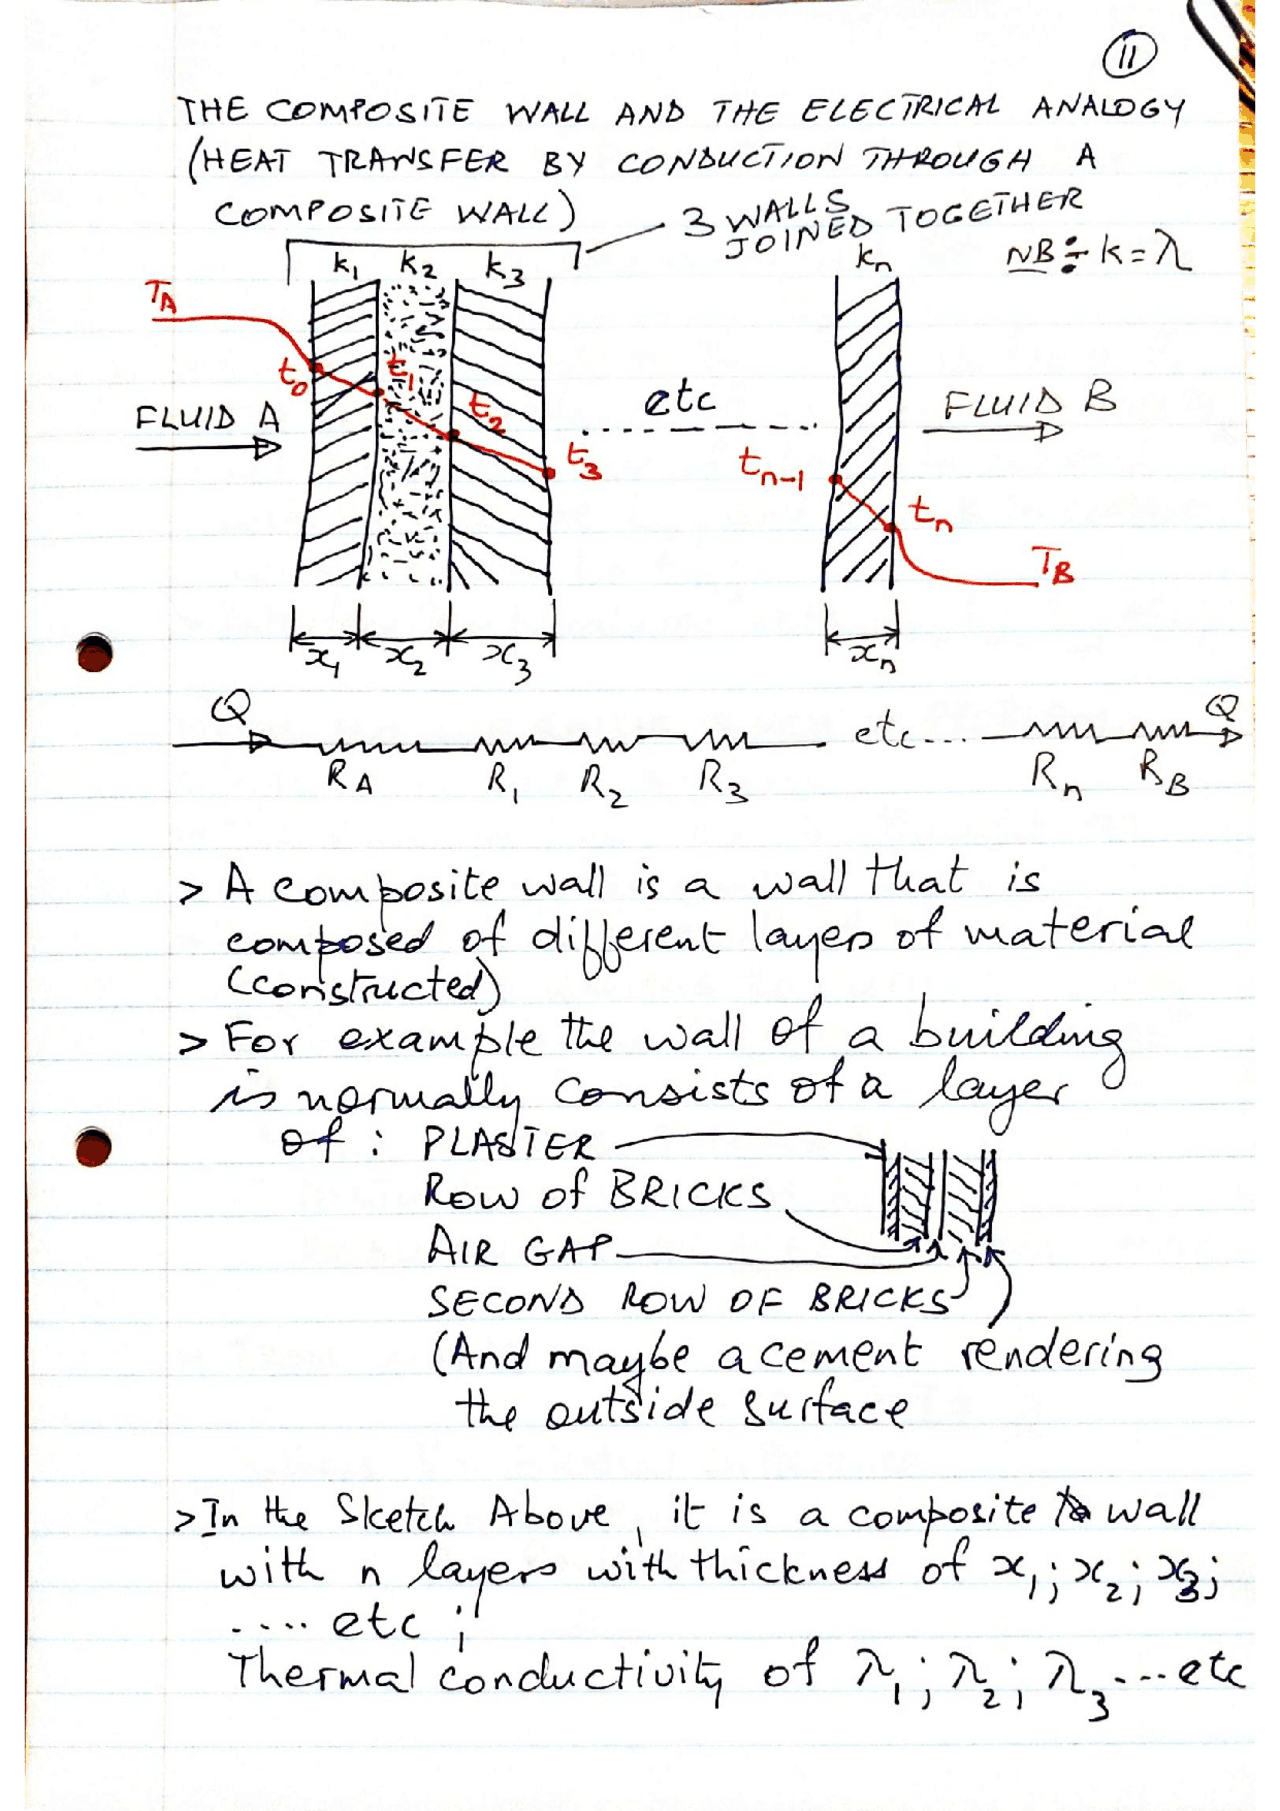 11
THE COMPOSITE WALL AND THE ELECTRICAL ANALOGY
(HEAT TRANSFER BY CONDUCTION THROUGH A
COMPOSITE WALL)
3 WALLS JOINED TOGETHER
k₁ k₂ k₃ kₙ NB ÷ k = λ
T_A
t₀ t₁ t₂ t₃ etc tₙ₋₁ tₙ
FLUID A FLUID B
T_B
x₁ x₂ x₃ xₙ
Q etc.... Q
R_A R₁ R₂ R₃ Rₙ R_B
> A composite wall is a wall that is
composed of different layers of material
(constructed)
> For example the wall of a building
is normally consists of a layer
of : PLASTER
ROW OF BRICKS
AIR GAP
SECOND ROW OF BRICKS
(And maybe a cement rendering
the outside surface
> In the Sketch Above, it is a composite wall
with n layers with thickness of x₁; x₂; x₃;
.... etc ;
Thermal conductivity of λ₁; λ₂; λ₃ ... etc